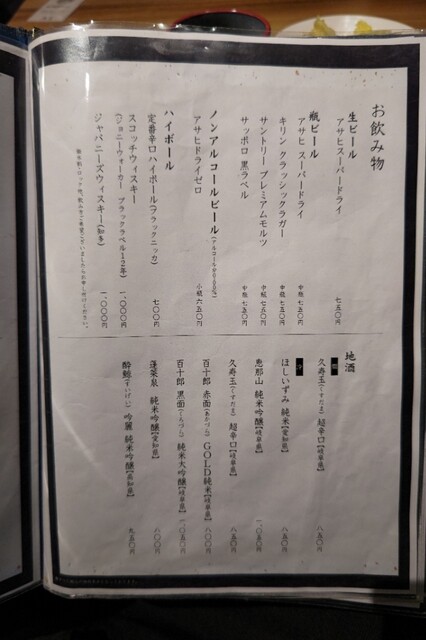 お飲み物
生ビール
アサヒスーパードライ 七五〇円
瓶ビール
アサヒ スーパードライ 中瓶 七五〇円
キリン クラッシックラガー 中瓶 七五〇円
サントリー プレミアムモルツ 中瓶 七五〇円
サッポロ 黒ラベル 中瓶 七五〇円
ノンアルコールビール(アルコール分0.00%)
アサヒドライゼロ 小瓶 六五〇円
ハイボール
定番辛口ハイボール(ブラックニッカ) 七〇〇円
スコッチウィスキー
(ジョニーウォーカー ブラックラベル12年) 一、〇〇〇円
ジャパニーズウィスキー(知多) 一、〇〇〇円
地酒
久寿玉(くすだま) 超辛口【岐阜県】 八五〇円
ほしいずみ 純米【愛知県】 八五〇円
恵那山 純米吟醸【岐阜県】 一、〇五〇円
久寿玉(くすだま) 超辛口【岐阜県】 八五〇円
百十郎 赤面(あかづら) GOLD純米【岐阜県】 八〇〇円
百十郎 黒面(くろづら) 純米大吟醸【岐阜県】 一、〇五〇円
蓬莱泉 純米吟醸【愛知県】 八〇〇円
酔鯨(すいげい) 吟麗 純米吟醸【高知県】 九五〇円